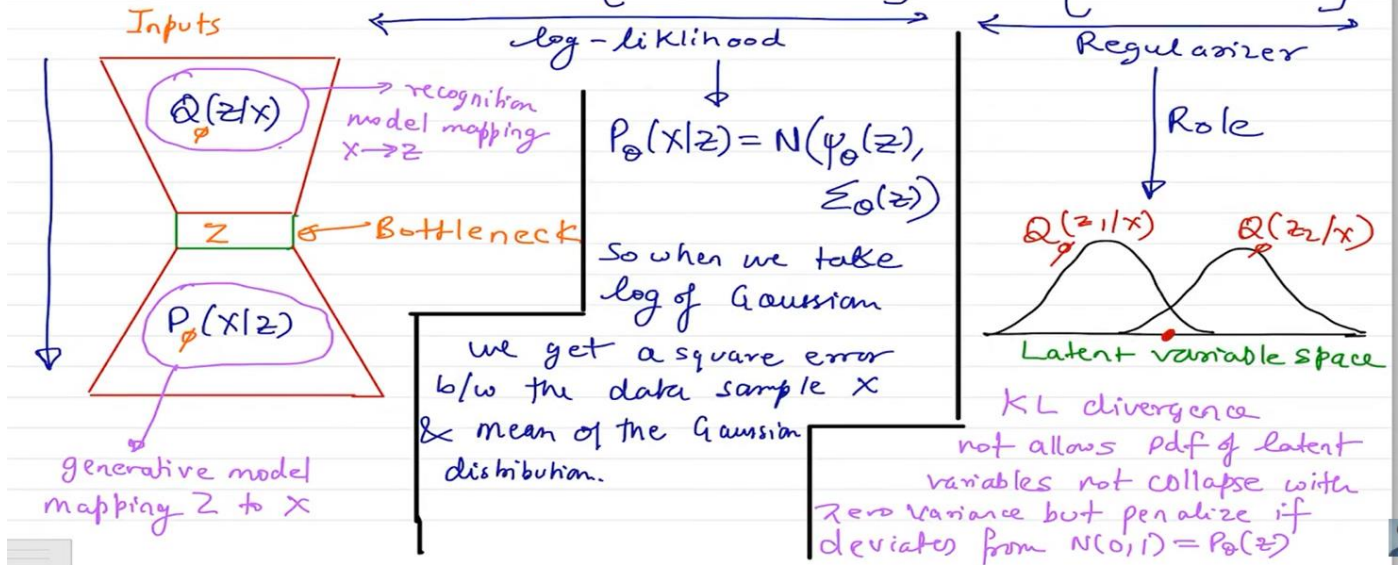 Inputs
Q_φ(z/x)
recognition
model mapping
x→z
Z
Bottleneck
P_φ(X|z)
generative model
mapping Z to X
log-liklihood
P_θ(X|z) = N(ψ_θ(z),
Σ_θ(z))
So when we take
log of Gaussian
we get a square error
b/w the data sample x
& mean of the Gaussian
distribution.
Regularizer
Role
Q_φ(z₁/x) Q_φ(z₂/x)
Latent variable space
KL divergence
not allows pdf of latent
variables not collapse with
zero variance but penalize if
deviates from N(0,1) = P_θ(z)